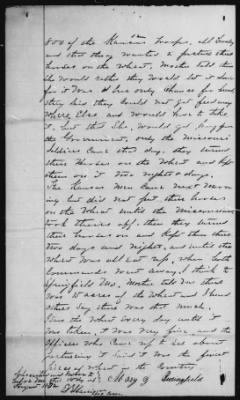 800 of the Kansas Troops, all
and said they wanted to pasture their
horses on the wheat, Mother told them
She would rather they would let it alone
for it was her only chance for bread
they said they could not get feed any
where else and would have to take
it, but that She would get pay from
the Government, only the Missouri
Soldiers came that day, they turned
their Horses on the Wheat and kept
them on it Two nights & days.
The Kansas Men came next morn
ing but did not put their horses
on the Wheat until the Missourians
took theirs off, then they turned
their horses on and kept them there
two days and nights, and until the
Wheat was all eat up, when both
Commands went away, I think to
Springfield Mo. Mother told me there
was 15 acres of the Wheat and I heard
others say there was that much.
I saw the wheat every day until it
was taken, it was very fine, and the
Officers who came up to see about
pasturing it said it was the finest
piece of wheat in the Country
Mary J
before me this 10 day of
August 1872